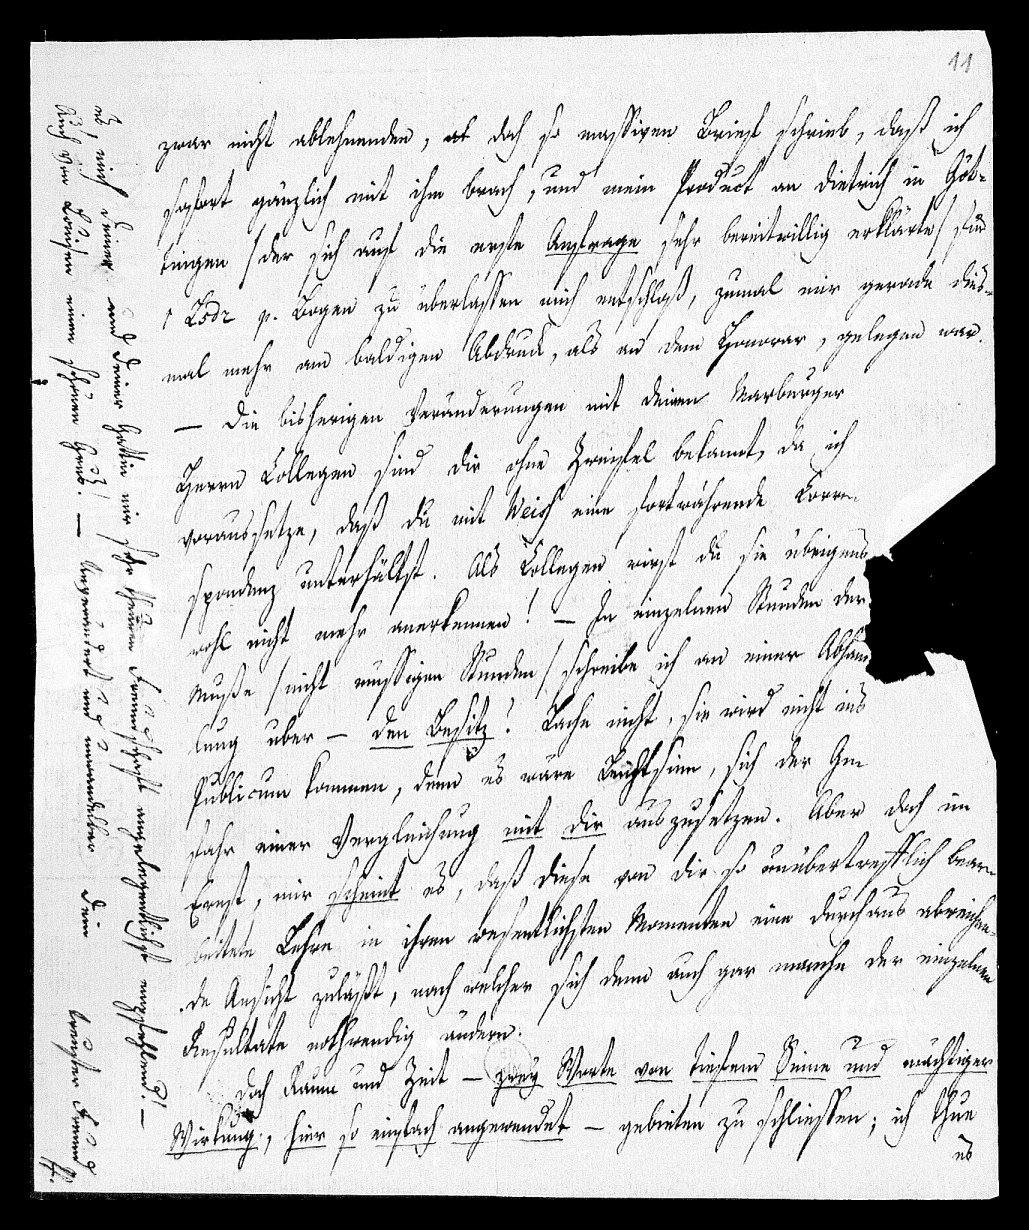 11
zwar nicht ablehnenden, doch so massiven Brief schrieb, daß ich
sofort gänzlich mit ihm brach, und mein Product an Dietrich in Göt-
tingen /der sich auf die erste Anfrage sehr bereitwillig erklärte/ für
1 Ldr p. Bogen zu überlassen mich entschloß, zumal mir gerade dies-
mal mehr am baldigen Abdruck, als an dem Honorar, gelegen war.
— Die bisherigen Veränderungen mit deinen Marburger
Herrn Collegen sind dir ohne Zweifel bekannt, da ich
voraussetze, daß du mit Weis eine fortwährende Corre-
spondenz unterhältst. Als Collegen wirst du sie übrigens
wohl nicht mehr anerkennen! — In einzelnen Stunden der
Muße /nicht müssigen Stunden/ schreibe ich an einer Abhand
lung über — den Besitz! Lache nicht, sie wird nicht ins
Publicum kommen, denn es wäre Leichtsinn, sich der Ge
fahr einer Vergleichung mit dir auszusetzen. Aber doch im
Ernst, mir scheint es, daß diese von dir so unübertrefflich bear-
beitete Lehre in ihren wesentlichsten Momenten eine durchaus abweichen-
de Ansicht zuläßt, nach welcher sich denn auch gar manche der einzelnen
Resultate nothwendig ändern.
Doch Raum und Zeit — zwey Worte von tiefem Sinne und mächtiger
Wirkung, hier so einfach angewendet — gebieten zu schliessen; ich thue
es
mich deiner und deiner Gattin mir sehr theuren Freundschaft angelegentlichst empfehlen. —
einen schönen Gruß. — Unverändert und unwandelbar dein